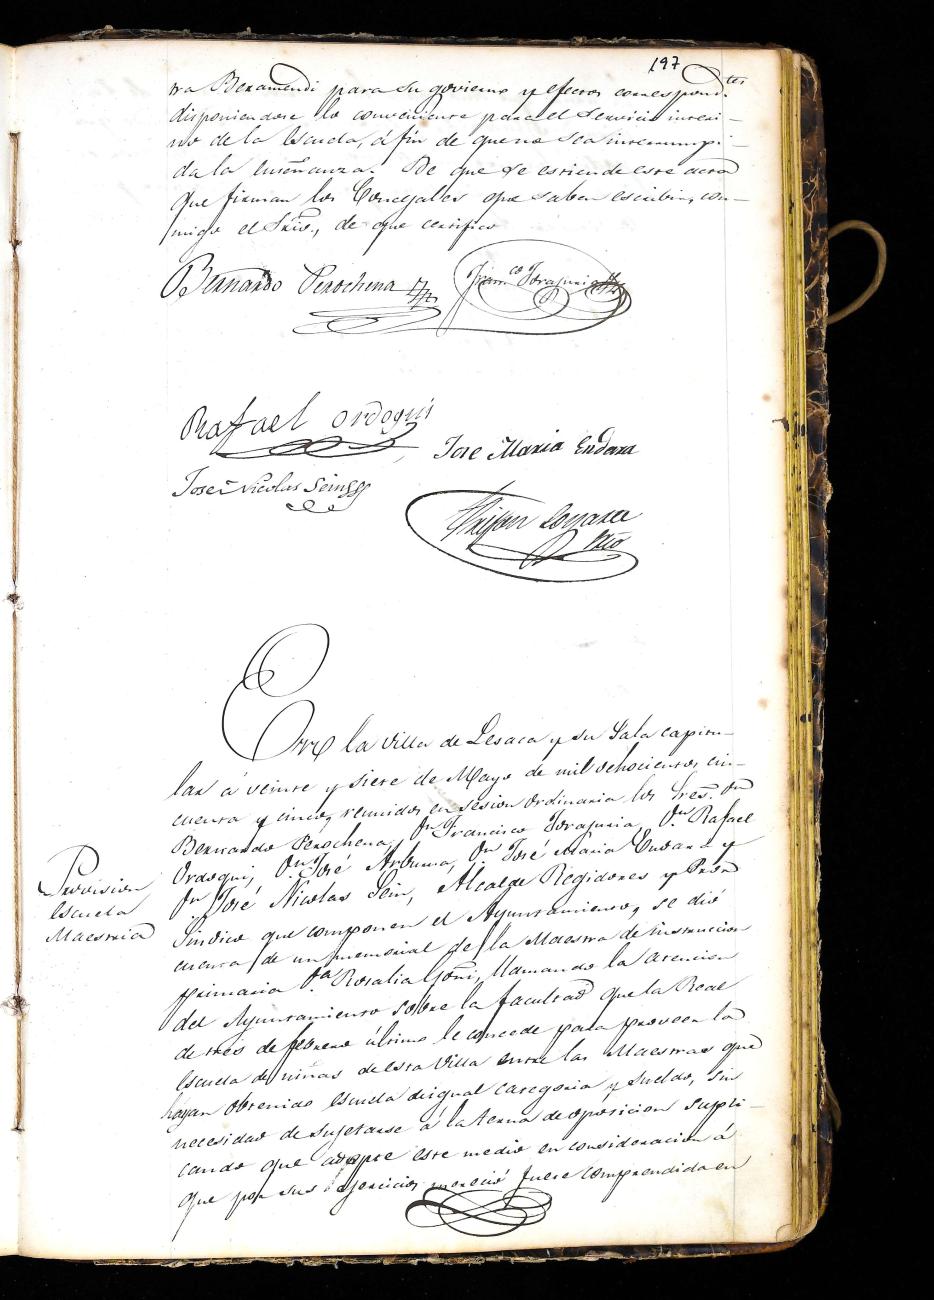 197
ra Beramendi para su govierno y efectos correspond.tes
disponiendose lo conveniente para el Servicio interi-
no de la escuela, á fin de que no sea interrumpi-
da la enseñanza. De que se estiende este acta
que firman los Concejales que saben escribir, con-
migo el Srio, de que certifico
Bernardo Perochena
Fran.co Torajuria
Rafael Ordoqui
Jose Maria Endara
Jose Nicolas Sein
Srio
En la Villa de Lesaca y su Sala capitu-
lar á veinte y siete de Mayo de mil ochocientos cin-
cuenta y cinco, reunidos en sesion ordinaria los Sres. Dn
Bernardo Perochena, Dn Francisco Torajuria, Dn Rafael
Ordoqui, Dn José Arburua, Dn José Maria Endara y
Dn José Nicolas Sein, Alcalde Regidores y Pror
Sindico que componen el Ayuntamiento, se dió
cuenta de un memorial de la Maestra de instruccion
primaria D.a Rosalia Goñi, llamando la atencion
del Ayuntamiento sobre la facultad que la Real
de tres de febrero último le concede para proveer la
escuela de niñas de esta Villa entre las Maestras que
hayan obtenido escuela de igual categoria y sueldo, sin
necesidad de sujetarse á la terna de oposicion supli-
cando que adopte este medio en consideracion á
que por sus ejercicios mereció fuere comprendida en
Provision
escuela
Maestria